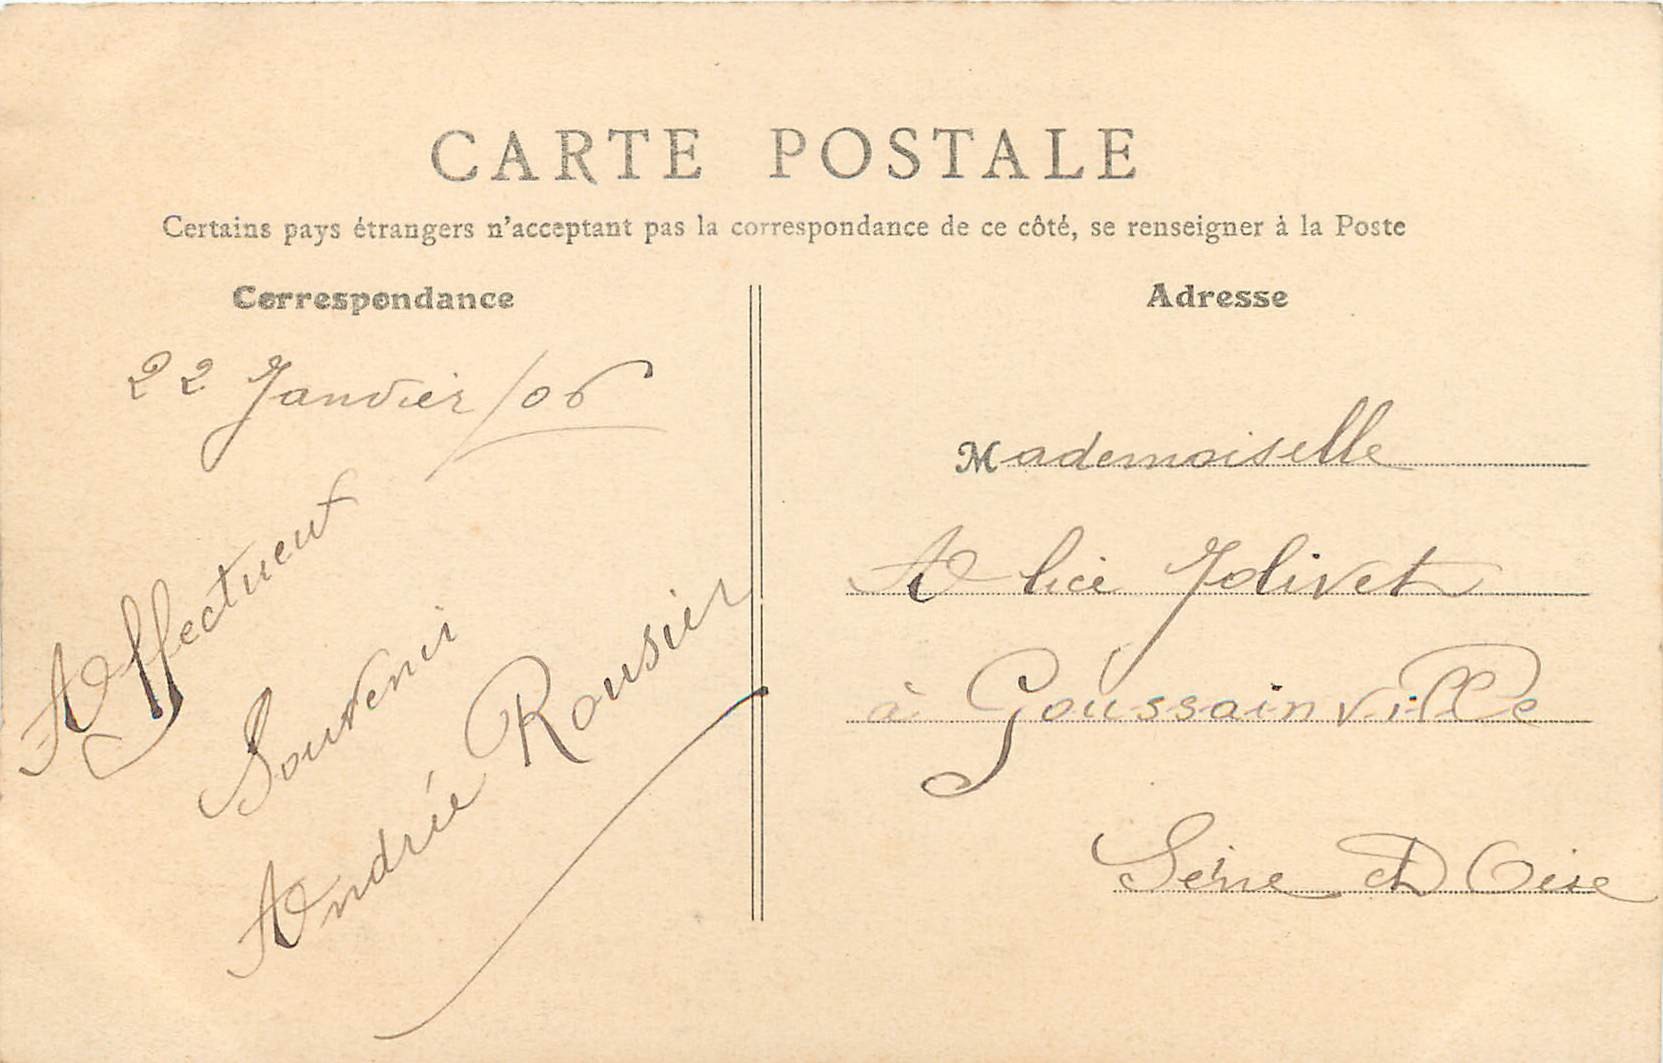 CARTE POSTALE
Certains pays étrangers n'acceptant pas la correspondance de ce côté, se renseigner à la Poste
Correspondance
22 Janvier / 06
Affectueux
Souvenir
Andrée Rousier
Adresse
Mademoiselle
Alice Jolivet
à Goussainville
Seine & Oise